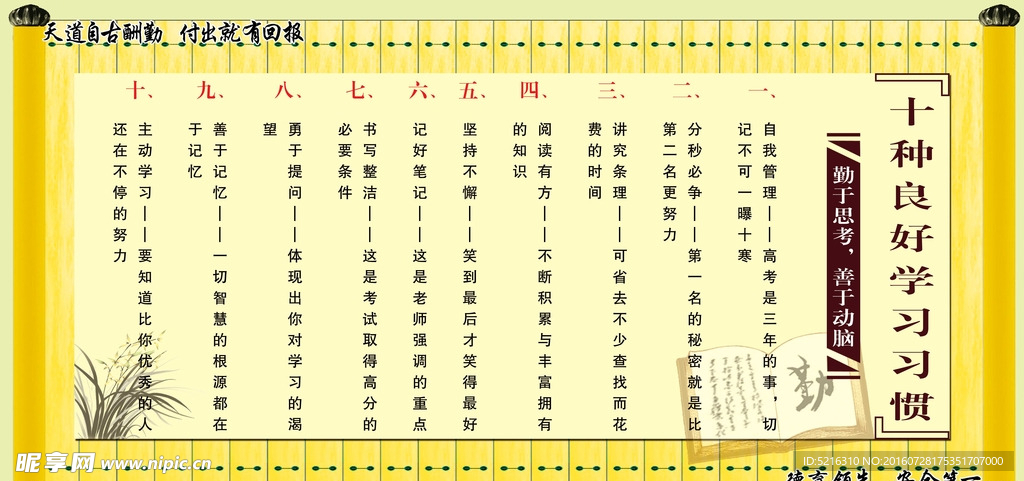 天道自古酬勤 付出就有回报
十种良好学习习惯
勤于思考，善于动脑
一、
自我管理——高考是三年的事，切
记不可一曝十寒
二、
分秒必争——第一名的秘密就是比
第二名更努力
三、
讲究条理——可省去不少查找而花
费的时间
四、
阅读有方——不断积累与丰富拥有
的知识
五、
坚持不懈——笑到最后才笑得最好
六、
记好笔记——这是老师强调的重点
七、
书写整洁——这是考试取得高分的
必要条件
八、
勇于提问——体现出你对学习的渴
望
九、
善于记忆——一切智慧的根源都在
于记忆
十、
主动学习——要知道比你优秀的人
还在不停的努力
勤
昵享网 www.nipic.cn
ID:5216310 NO:20160728175351707000